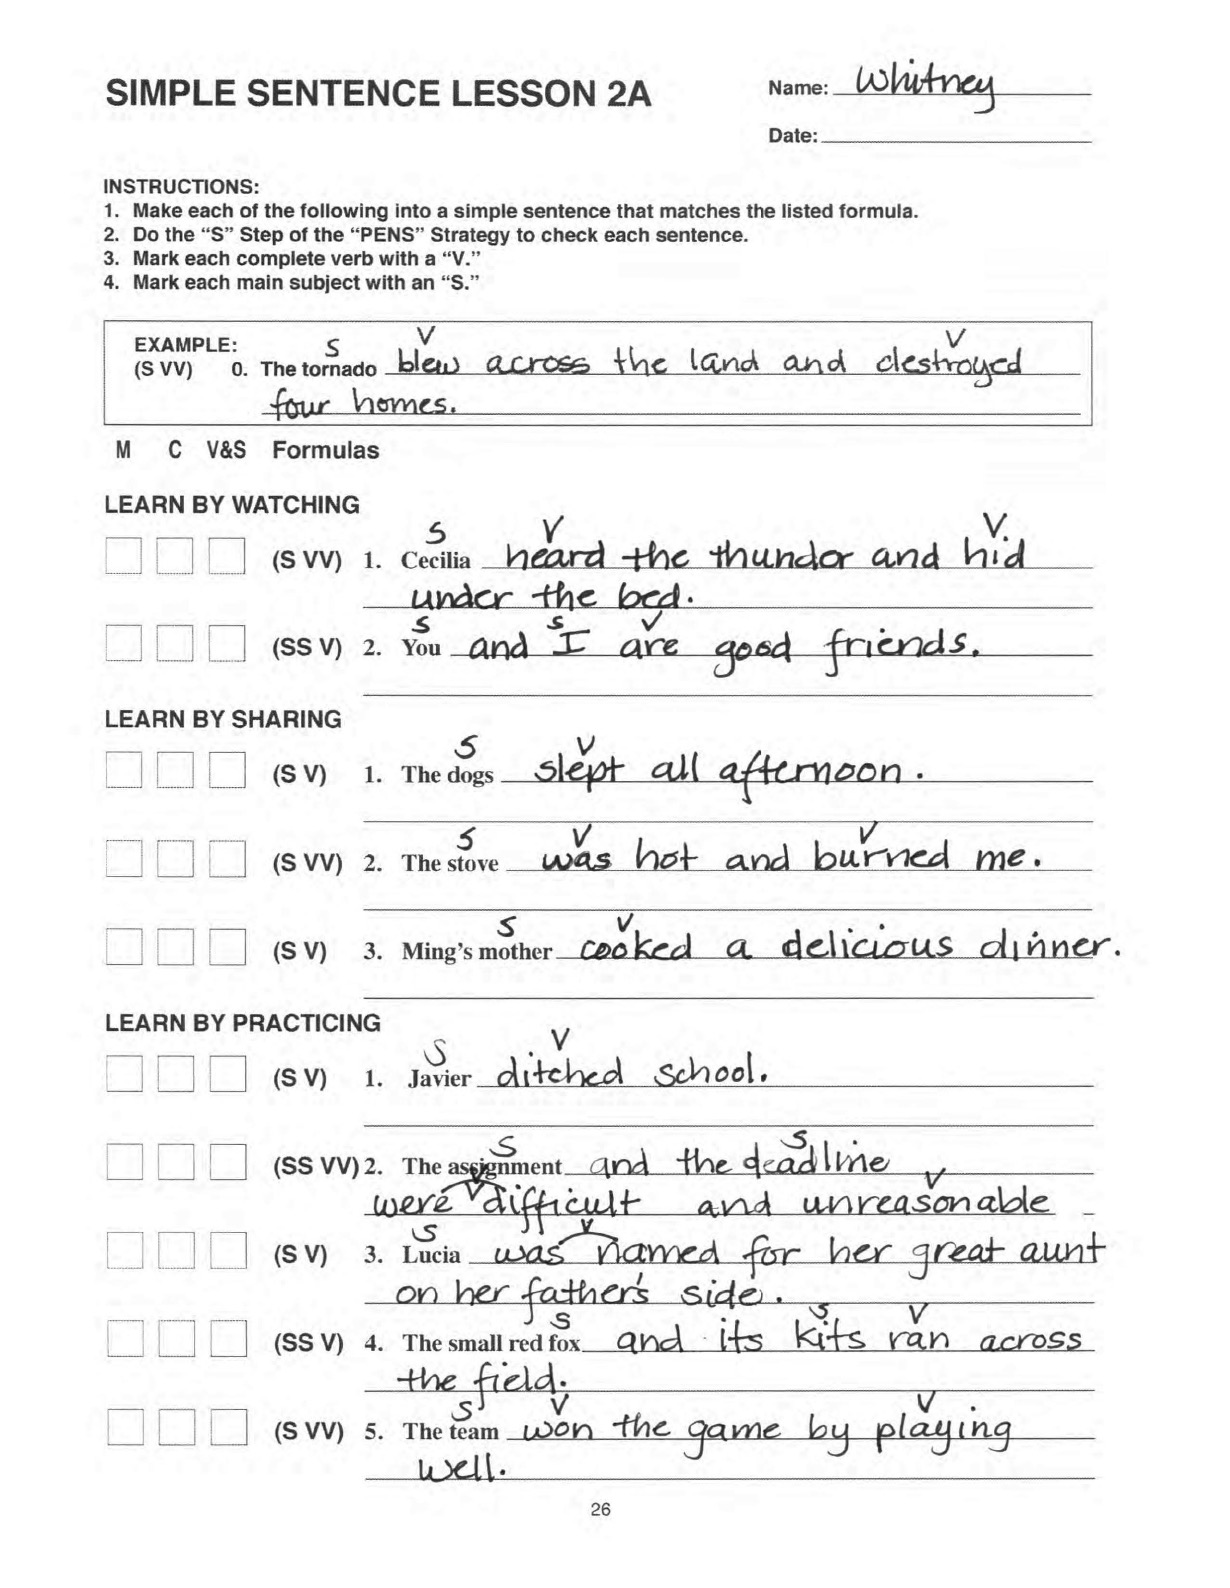 SIMPLE SENTENCE LESSON 2A
Name: Whitney
Date:
INSTRUCTIONS:
1. Make each of the following into a simple sentence that matches the listed formula.
2. Do the “S” Step of the “PENS” Strategy to check each sentence.
3. Mark each complete verb with a “V.”
4. Mark each main subject with an “S.”
EXAMPLE:
S V V
(S VV) 0. The tornado blew across the land and destroyed
four homes.
M C V&S Formulas
LEARN BY WATCHING
S V V
(S VV) 1. Cecilia heard the thunder and hid
under the bed.
S S V
(SS V) 2. You and I are good friends.
LEARN BY SHARING
S V
(S V) 1. The dogs slept all afternoon.
S V V
(S VV) 2. The stove was hot and burned me.
S V
(S V) 3. Ming’s mother cooked a delicious dinner.
LEARN BY PRACTICING
S V
(S V) 1. Javier ditched school.
S S
(SS VV) 2. The assignment and the deadline
V V V
were difficult and unreasonable
S V
(S V) 3. Lucia was named for her great aunt
on her father's side.
S S V
(SS V) 4. The small red fox and its kits ran across
the field.
S V V
(S VV) 5. The team won the game by playing
well.
26